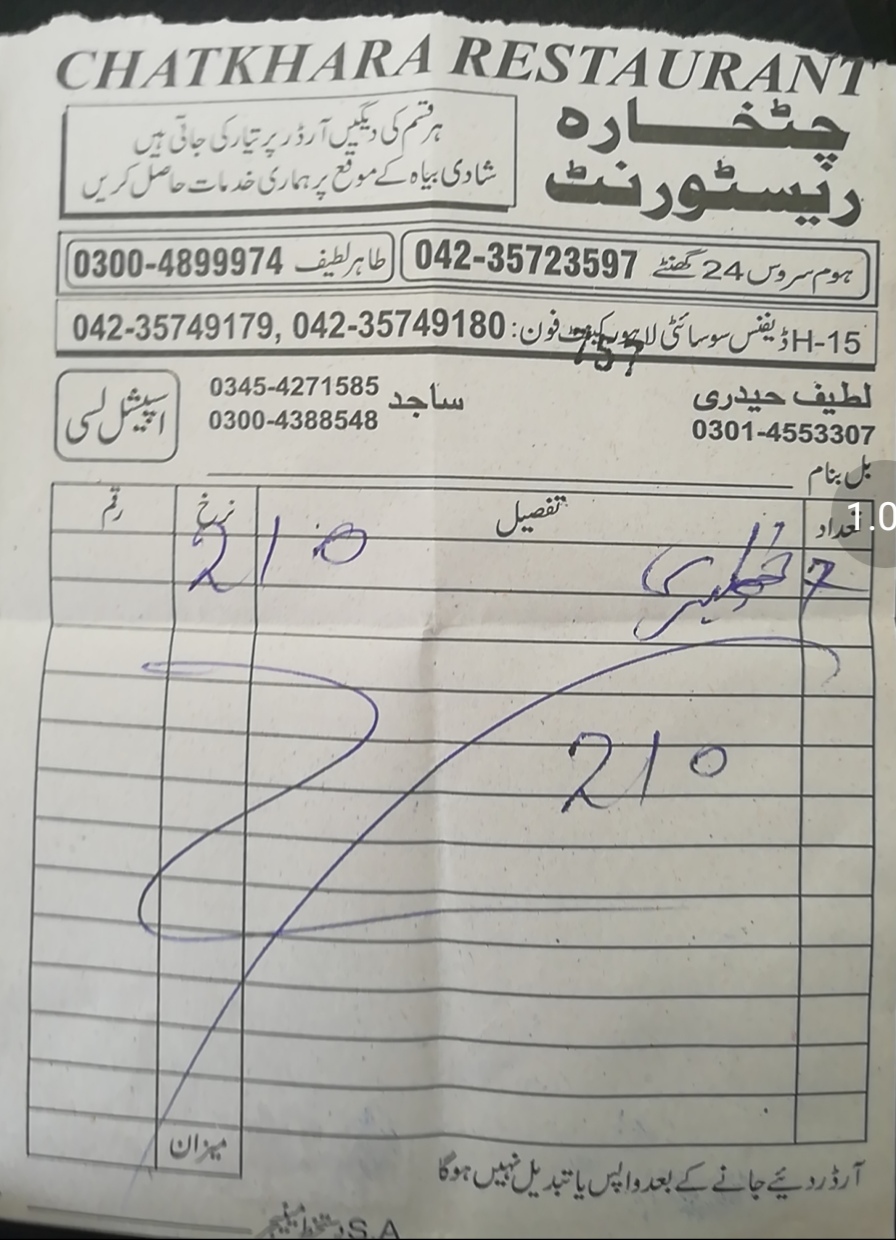 CHATKHARA RESTAURANT
چٹخارہ
ریسٹورنٹ
ہر قسم کی دیگیں آرڈر پر تیار کی جاتی ہیں
شادی بیاہ کے موقع پر ہماری خدمات حاصل کریں
ہوم سروس 24 گھنٹے 042-35723597
طاہر لطیف 0300-4899974
H-15 ڈیفنس سوسائٹی لاہور کینٹ فون: 042-35749179, 042-35749180
757
لطیف حیدری
0301-4553307
ساجد 0345-4271585
0300-4388548
اسپیشل لسی
بل بنام
تعداد تفصیل نرخ رقم
7 210
210
میزان
آرڈر دیئے جانے کے بعد واپس یا تبدیل نہیں ہوگا
S.A
1.0